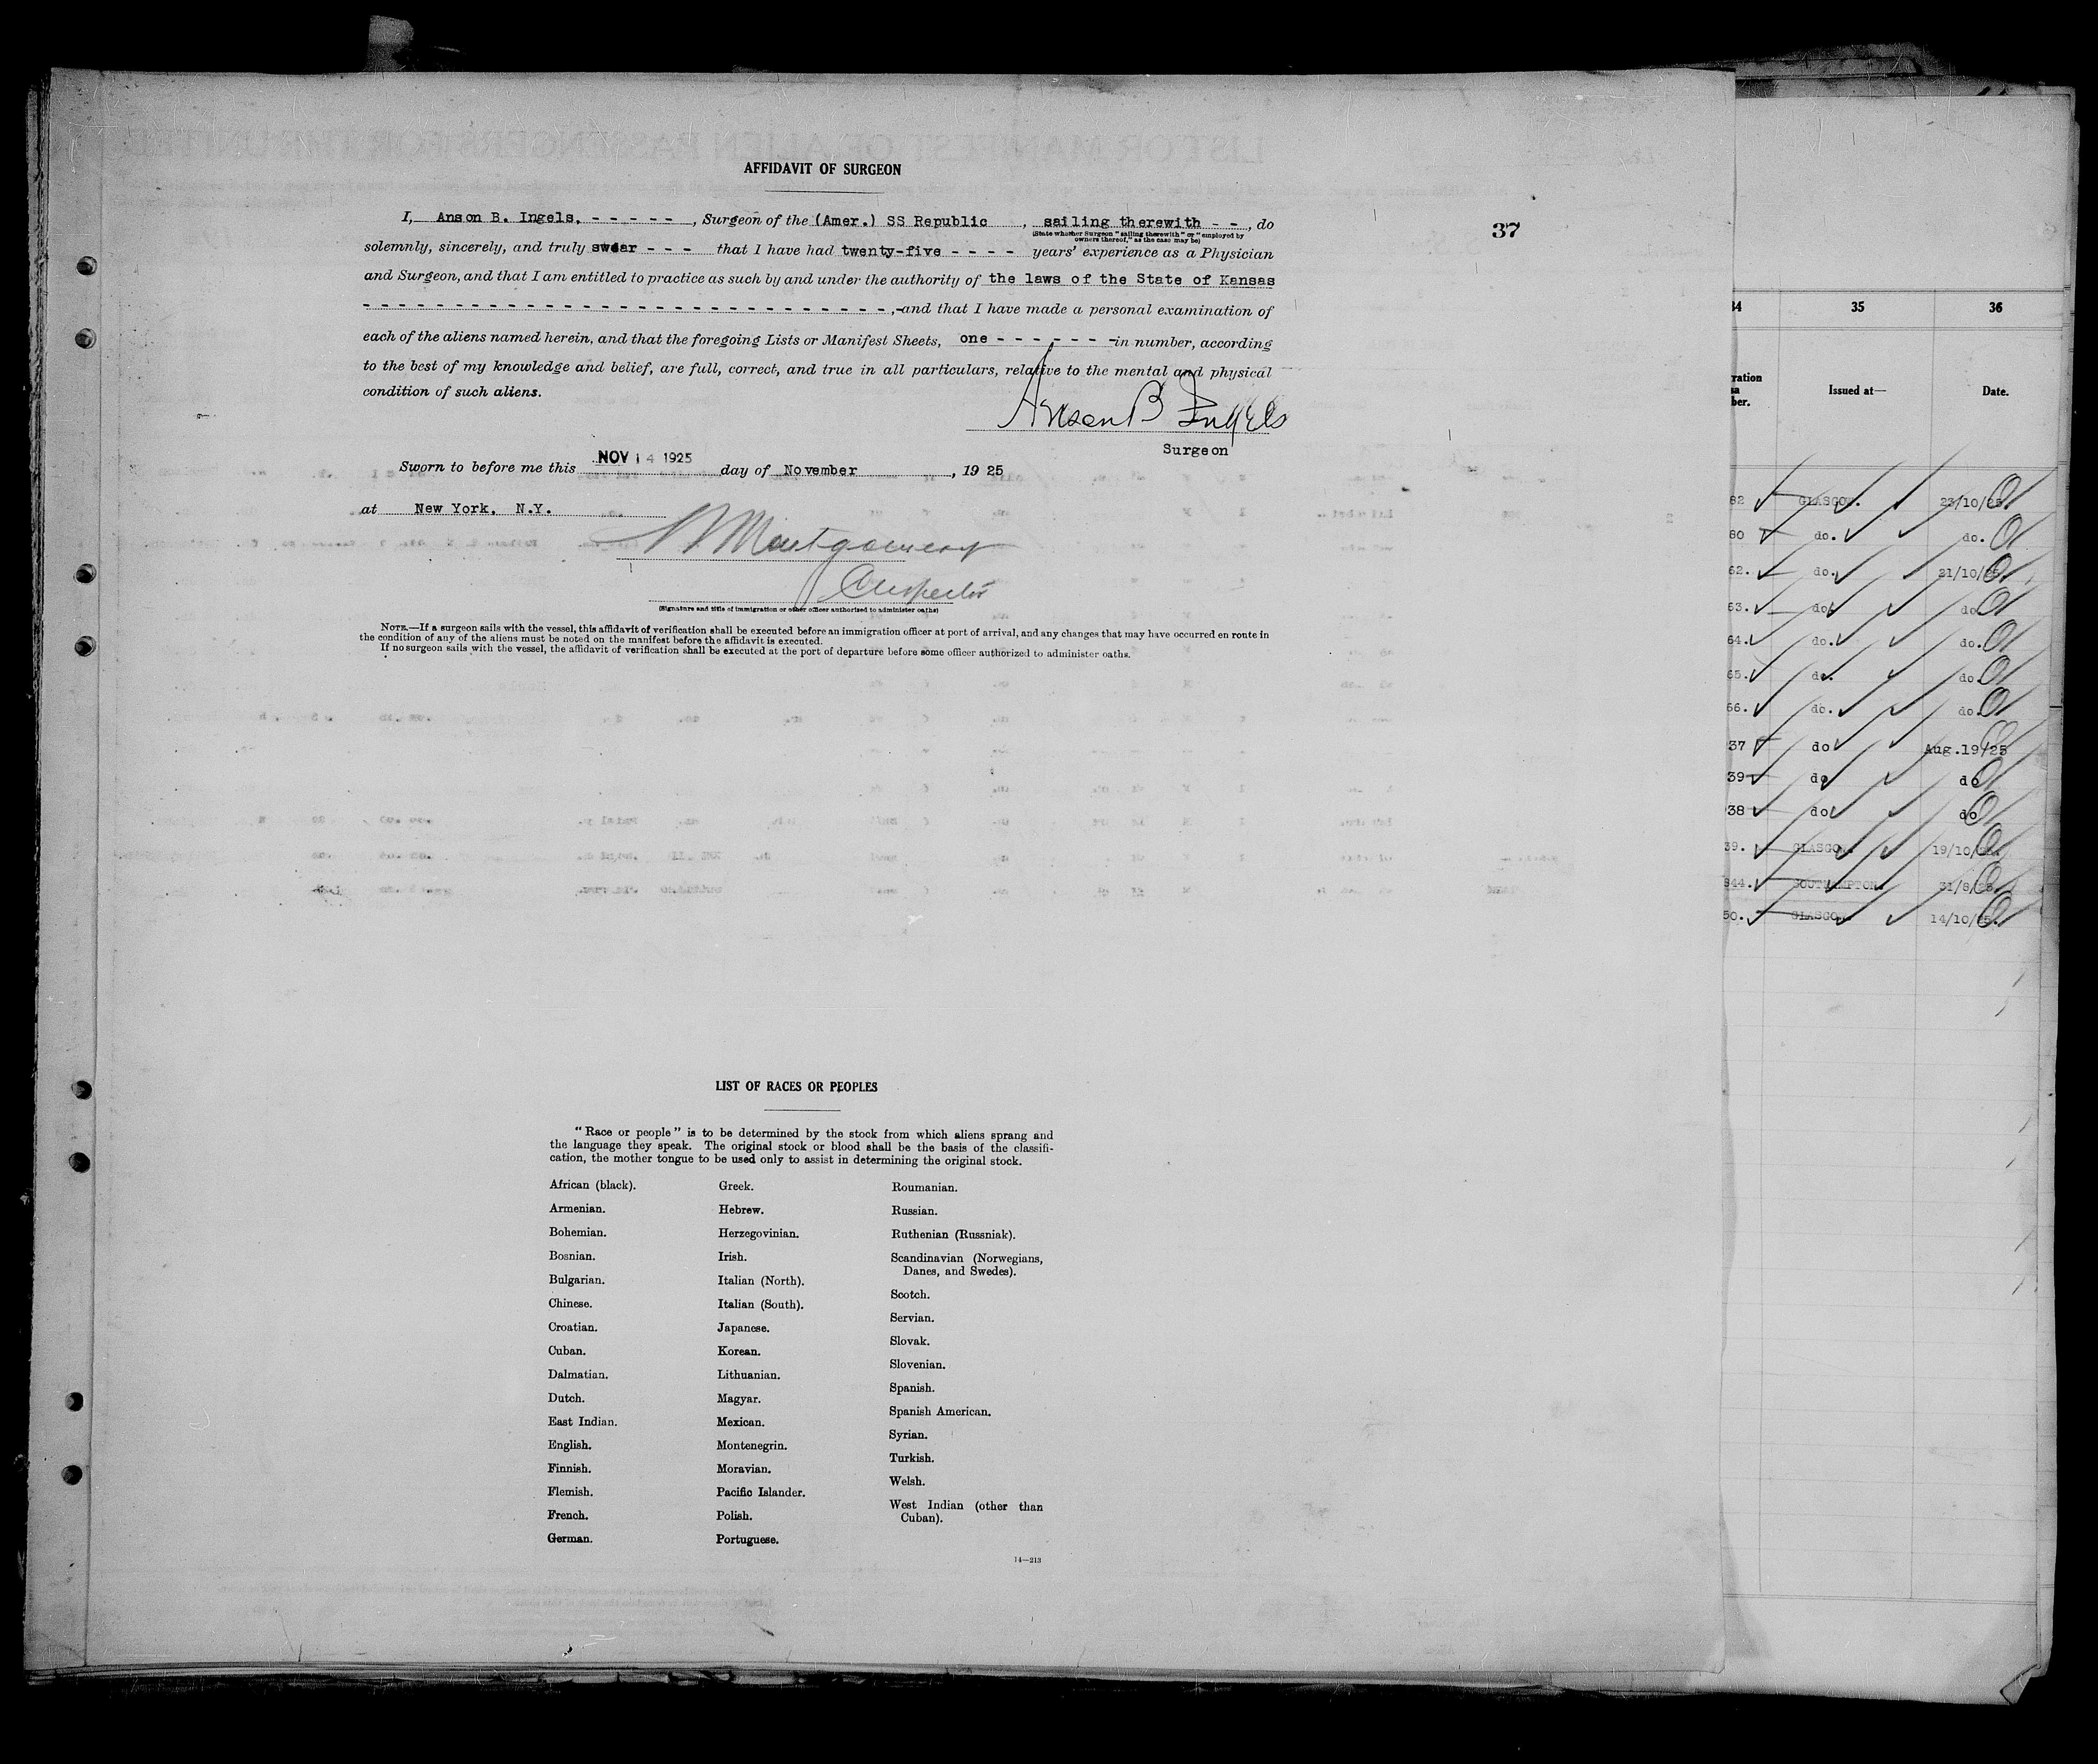 AFFIDAVIT OF SURGEON
I, Anson B. Ingels, - - - - - , Surgeon of the (Amer.) SS Republic , sailing therewith - - , do
(State whether Surgeon "sailing therewith" or "employed by
owners thereof," as the case may be)
37
solemnly, sincerely, and truly swear - - - that I have had twenty-five - - - - years' experience as a Physician
and Surgeon, and that I am entitled to practice as such by and under the authority of the laws of the State of Kansas
- - - - - - - - - - - - - - - - - - - - - - - - - - - - - , and that I have made a personal examination of
each of the aliens named herein, and that the foregoing Lists or Manifest Sheets, one - - - - - - - in number, according
to the best of my knowledge and belief, are full, correct, and true in all particulars, relative to the mental and physical
condition of such aliens.
Anson B Ingels
Surgeon
Sworn to before me this NOV 14 1925 day of November , 19 25
at New York, N.Y.
Montgomery
Inspector
(Signature and title of immigration or other officer authorized to administer oaths)
NOTE.—If a surgeon sails with the vessel, this affidavit of verification shall be executed before an immigration officer at port of arrival, and any changes that may have occurred en route in
the condition of any of the aliens must be noted on the manifest before the affidavit is executed.
If no surgeon sails with the vessel, the affidavit of verification shall be executed at the port of departure before some officer authorized to administer oaths.
LIST OF RACES OR PEOPLES
"Race or people" is to be determined by the stock from which aliens sprang and
the language they speak. The original stock or blood shall be the basis of the classifi-
cation, the mother tongue to be used only to assist in determining the original stock.
African (black).
Armenian.
Bohemian.
Bosnian.
Bulgarian.
Chinese.
Croatian.
Cuban.
Dalmatian.
Dutch.
East Indian.
English.
Finnish.
Flemish.
French.
German.
Greek.
Hebrew.
Herzegovinian.
Irish.
Italian (North).
Italian (South).
Japanese.
Korean.
Lithuanian.
Magyar.
Mexican.
Montenegrin.
Moravian.
Pacific Islander.
Polish.
Portuguese.
Roumanian.
Russian.
Ruthenian (Russniak).
Scandinavian (Norwegians,
Danes, and Swedes).
Scotch.
Servian.
Slovak.
Slovenian.
Spanish.
Spanish American.
Syrian.
Turkish.
Welsh.
West Indian (other than
Cuban).
14—213
34 35 36
Issued at— Date.
82 GLASGOW. 23/10/25
80 do. do.
62. do. 21/10/25
63. do. do.
64. do. do.
65. do. do.
66. do. do.
37 do Aug.19/25
39 do do
38 do do
39. GLASGOW. 19/10/25.
944. SOUTHAMPTON. 31/8/25.
50. GLASGOW. 14/10/25.